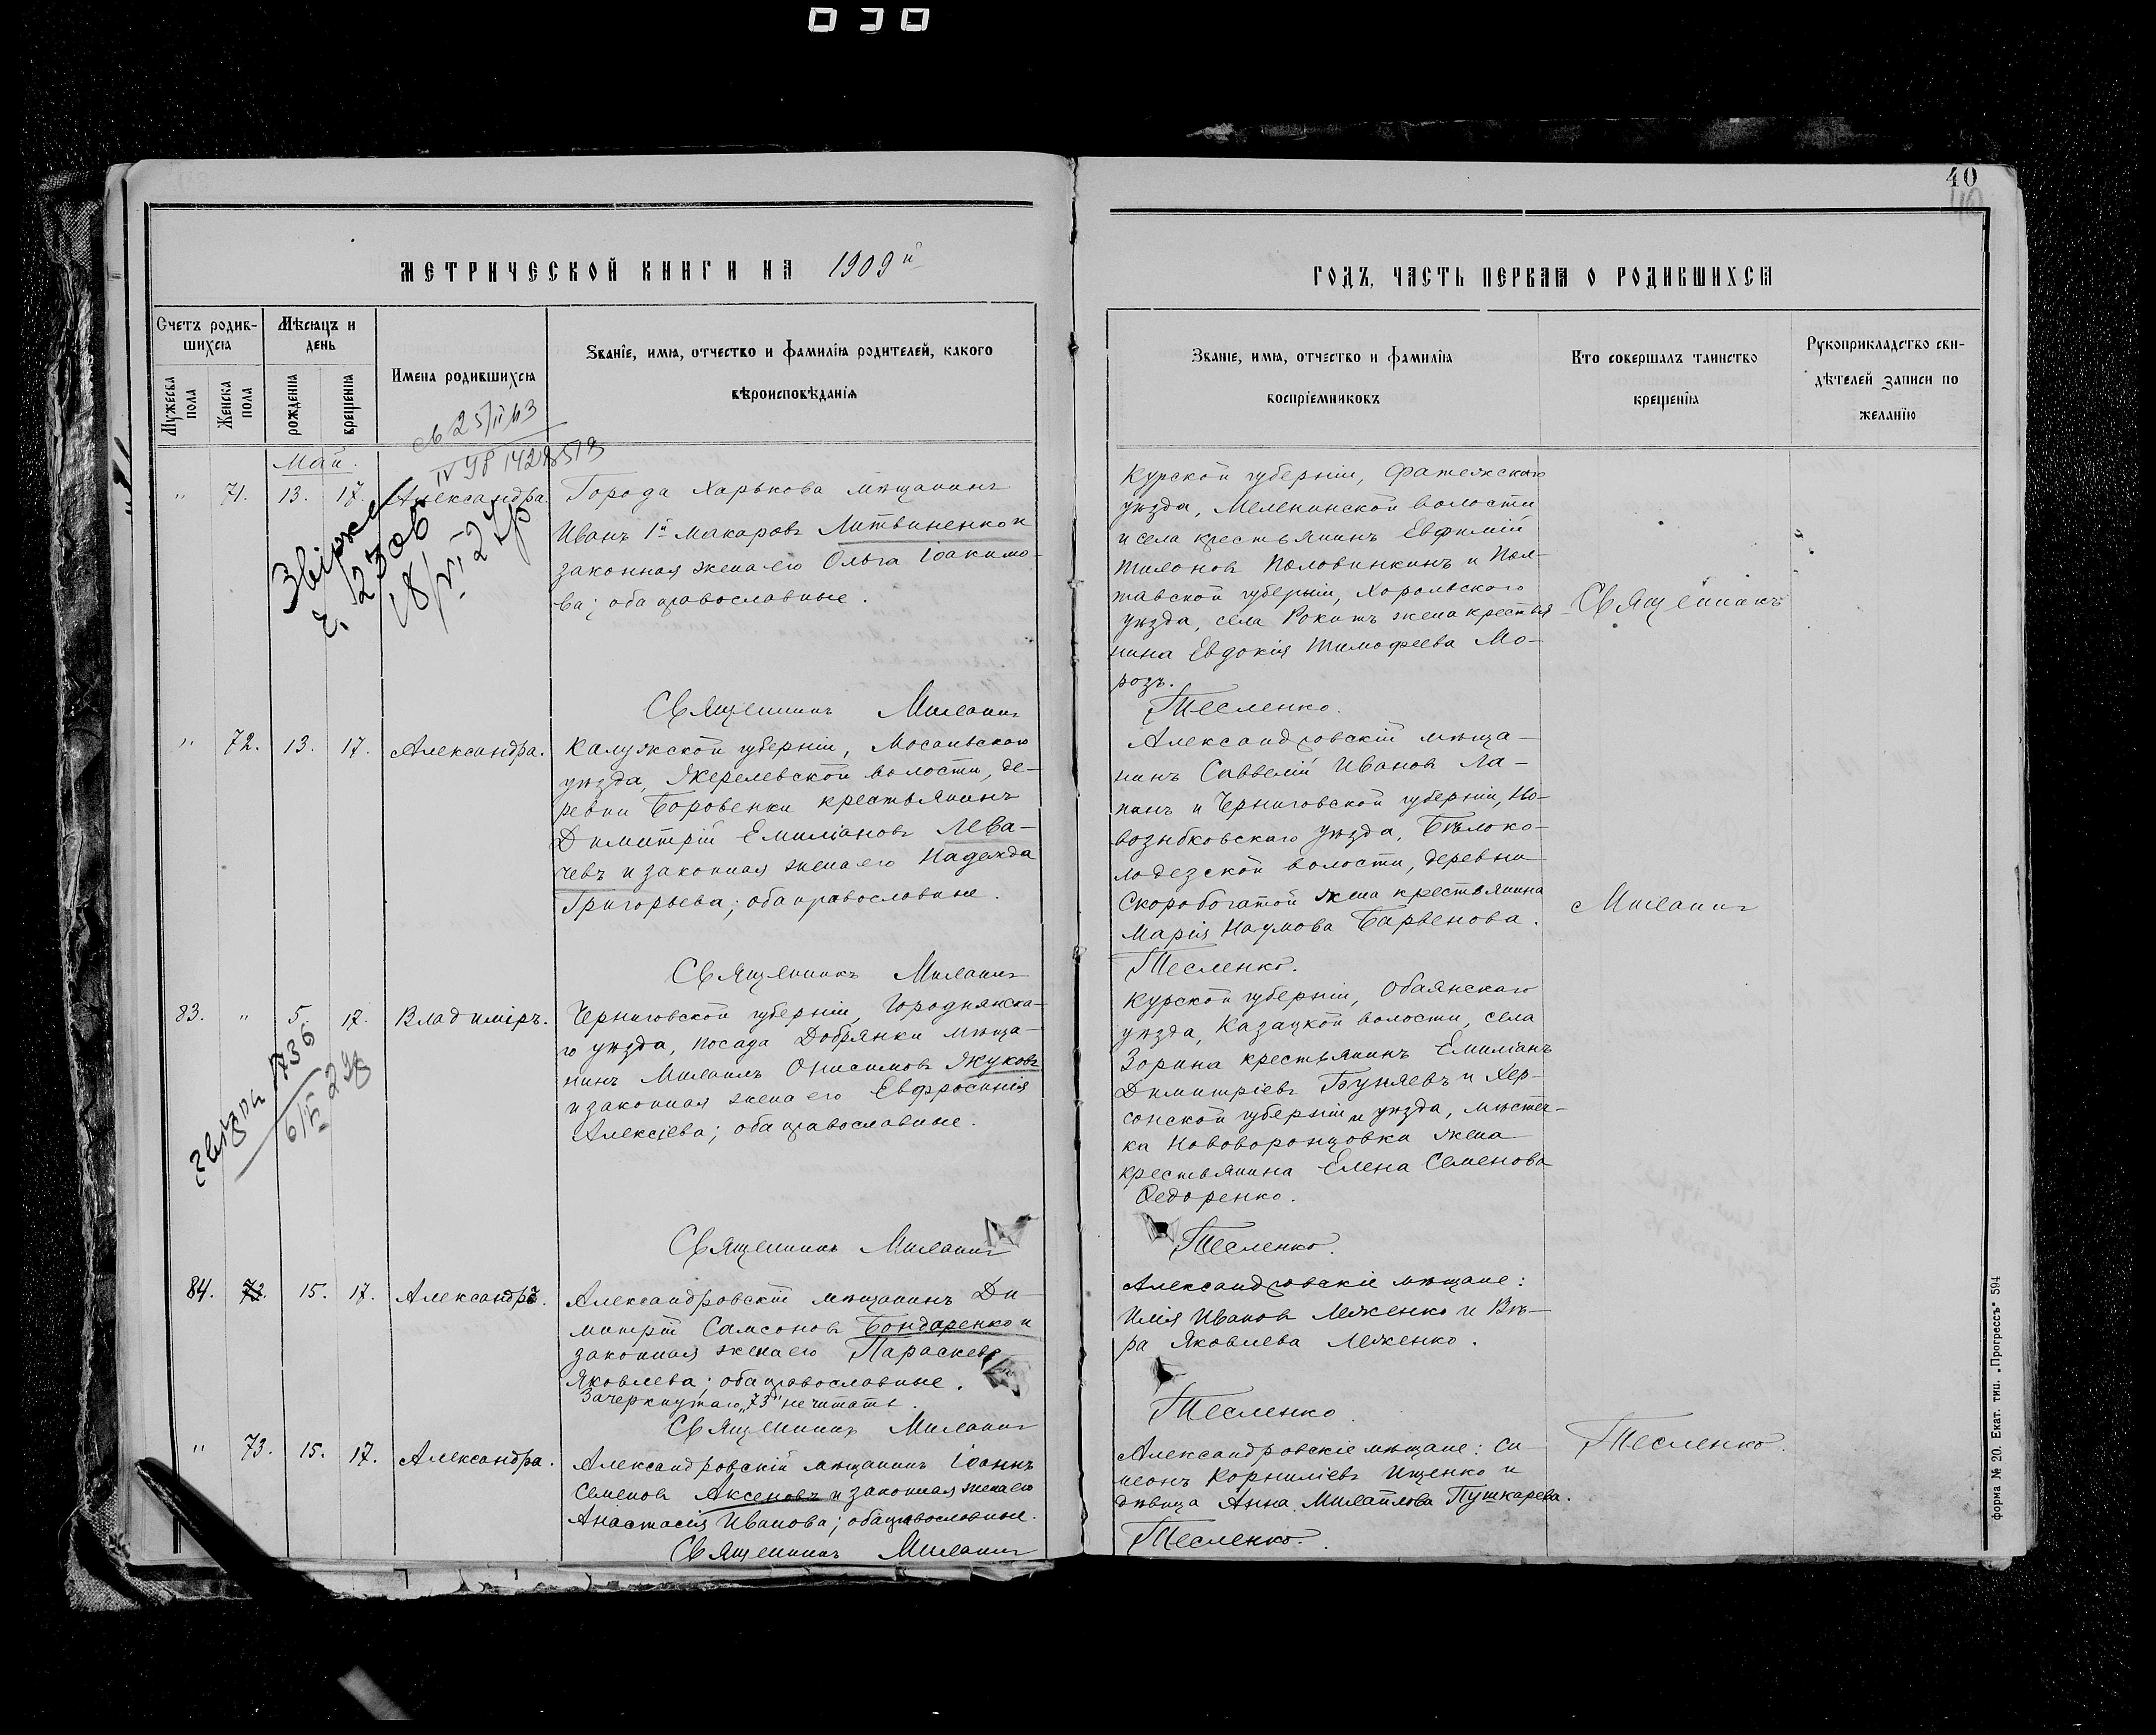 40
40
МЕТРИЧЕСКОЙ КНИГИ НА 1909й
ГОДЪ, ЧАСТЬ ПЕРВАЯ О РОДИВШИХСЯ
Счетъ родив-
шихся
Мѣсяцъ и
день
Мужеска
пола
Женска
пола
рожденія
крещенія
Имена родившихся
Званіе, имя, отчество и фамилія родителей, какого
вѣроисповѣданія
Званіе, имя, отчество и фамилія
воспріемниковъ
Кто совершалъ таинство
крещенія
Рукоприкладство сви-
дѣтелей записи по
желанію
Май.
" 71. 13. 17. Александра.
Города Харькова мѣщанинъ
Иванъ 1й Макаровъ Литвиненко и
законная жена его Ольга Іоакимо-
ва; оба православные.
Священникъ Михаилъ
Курской губерніи, Фатежскаго
уѣзда, Меленинской волости
и села крестьянинъ Евфимій
Тихоновъ Половинкинъ и Пол-
тавской губерніи, Хорольскаго
уѣзда, села Рокитъ жена крестья
нина Евдокія Тимофеева Мо-
розъ.
Тесленко.
Священникъ
" 72. 13. 17. Александра.
Калужской губерніи, Мосальскаго
уѣзда, Жерелевской волости, де-
ревни Боровенки крестьянинъ
Димитрій Емиліановъ Лева-
чевъ и законная жена его Надежда
Григорьева; оба православные.
Священникъ Михаилъ
Александровскій мѣща-
нинъ Савелій Ивановъ Ла-
панъ и Черниговской губерніи, Но-
возыбковскаго уѣзда, Бѣлоко-
лодезской волости, деревни
Скоробогатой жена крестьянина
Марія Наумова Барвенова.
Тесленко.
Михаилъ
83. " 5. 17. Владиміръ.
Черниговской губерніи, Городнянска-
го уѣзда, посада Добрянки мѣща-
нинъ Михаилъ Онисимовъ Жуковъ
и законная жена его Евфросинія
Алексіева; оба православные.
Священникъ Михаилъ
Курской губерніи, Обаянскаго
уѣзда, Казацкой волости, села
Зорина крестьянинъ Емиліанъ
Димитріевъ Буняевъ и Хер-
сонской губерніи и уѣзда, мѣстеч-
ка Нововоронцовки жена
крестьянина Елена Семенова
Федоренко.
Тесленко.
84. 73. 15. 17. Александръ.
Александровскій мѣщанинъ Ди-
митрій Самсоновъ Бондаренко и
законная жена его Параскева
Яковлева; оба православные.
Зачеркнутаго „73" не читать.
Священникъ Михаилъ
Александровскіе мѣщане:
Илія Ивановъ Леженко и Вѣ-
ра Яковлева Леженко.
Тесленко.
" 73. 15. 17. Александра.
Александровскій мѣщанинъ Іоаннъ
Семеновъ Аксеновъ и законная жена его
Анастасія Иванова; оба православные.
Священникъ Михаилъ
Александровскіе мѣщане: Си-
меонъ Корниліевъ Ищенко и
дѣвица Анна Михайлова Пушкарева.
Тесленко.
Тесленко.
Форма № 20. Екат. тип. „Прогрессъ" 594